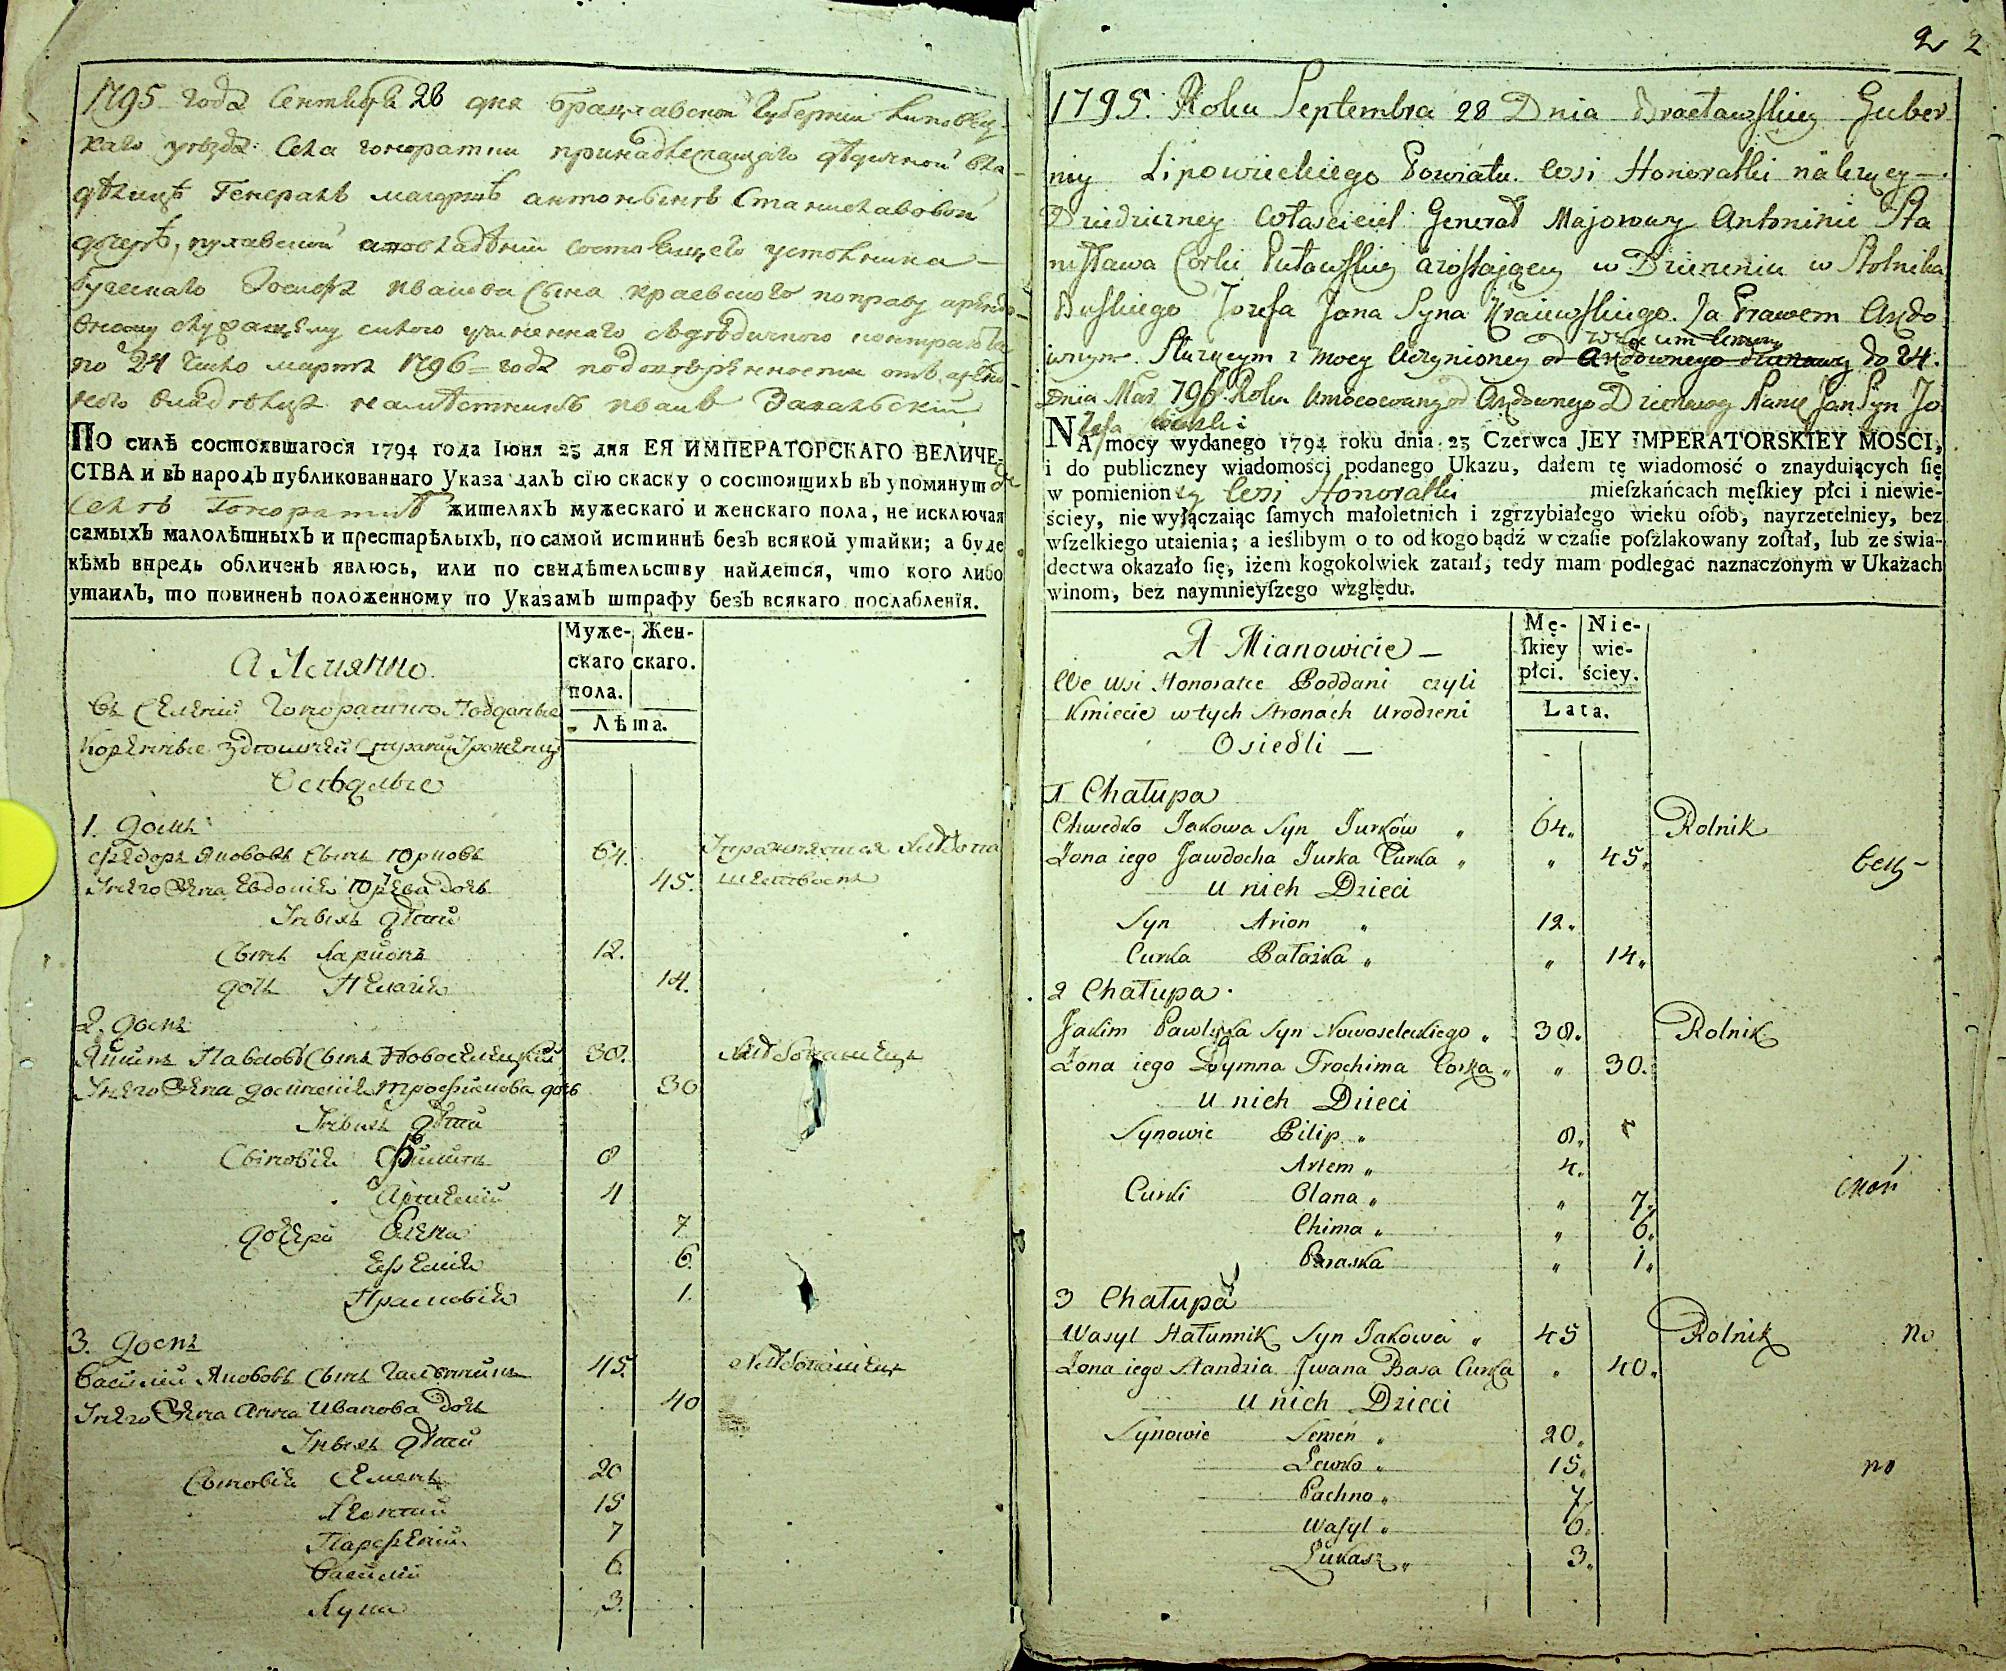 1795 года Сентября 28 дня Брацлавской Губернии Липовец-
каго уезда Села Гоноратки принадлежащаго дѣдичной вла-
дѣлицѣ Генералъ маіоршѣ антонынѣ Станиславовой
дочерѣ, пулавской состоящего устольника
бускаго Іосифа иванова Сына краевского по праву арендо-
вному служащему контракта
по 24 число марта 1796 года
наместникъ иванъ Закальскій
По силѣ состоявшагося 1794 года Іюня 23 дня ЕЯ ИМПЕРАТОРСКАГО ВЕЛИЧЕ-
СТВА и въ народъ публикованнаго Указа далъ сію скаску о состоящихъ въ упомянутомъ
Селѣ Гоноратке жителяхъ мужескаго и женскаго пола, не исключая
самыхъ малолѣтныхъ и престарѣлыхъ, по самой истиннѣ безъ всякой утайки; а буде
кѣмъ впредь обличенъ явлюсь, или по свидѣтельству найдется, что кого либо
утаилъ, то повиненъ положенному по Указамъ штрафу безъ всякаго послабленія.
А Имянно
Муже-скаго пола. Жен-скаго.
Лѣта.
въ Селеніи Гоноратке Подданые
Коренные здешней Страны Уроженцы
Оседлые
1. Домъ
Федоръ Якововъ Сынъ Юрковъ 64. Упражняется хлебопа-
У него Жена Евдокія Юрьева дочь 45. шествомъ
У нихъ дѣти
Сынъ Ларионъ 12.
дочь Пелагія 14.
2. Домъ
Якимъ Павловъ Сынъ Новоселецкий 38. Хлебопашецъ
У него Жена Домникія Трофимова дочь 30
У нихъ дѣти
Сыновья Филипъ 8
Артемий 4
дочери Елена 7
Евфимія 6.
Прасковія 1.
3. Домъ
Василий Якововъ Сынъ Галунникъ 45. Хлебопашецъ
У него Жена Анна Иванова дочь 40
У нихъ дѣти
Сыновья Семенъ 20
Леонтий 15
Парфений 7
Василий 6.
Лука 3.
2 2
1795. Roku Septembra 28 Dnia Bracławskiey Guber
nij Lipowieckiego Powiatu wsi Honoratki należącey —
Dziedziczney Właściciel Generał Majorowey Antoninie Sta
nisława Corki Puławskiey zostającey w Dzierżeniu w Stolnika
Buskiego Jozefa Jana Syna Kraiewskiego. Za Prawem Arędo
wnym Służącym z mocy Uczynioney do 24.
Dnia Mar. 796 Roku Umocowany od Arędownego Dzierżawcy Jan Syn Jo
zefa
NA mocy wydanego 1794 roku dnia 23 Czerwca JEY IMPERATORSKIEY MOSCI,
i do publiczney wiadomości podanego Ukazu, dałem tę wiadomość o znayduiących ſię
w pomienioney wsi Honoratki mieſzkańcach męſkiey płci i niewie-
ściey, nie wyłączaiąc ſamych małoletnich i zgrzybiałego wieku oſob, nayrzetelniey, bez
wſzelkiego utaienia; a ieślibym o to od kogo bądź w czaſie poſzlakowany zoſtał, lub ze świa-
dectwa okazało ſię, iżem kogokolwiek zataił, tedy mam podlegać naznaczonym w Ukazach
winom, bez naymnieyſzego względu.
A Mianowicie —
Mę-ſkiey płci. Nie-wie-ściey.
Lata.
We wsi Honoratce Poddani czyli
Kmiecie w tych Stronach Urodzeni
Osiedli —
1 Chałupa
Chwedko Jakowa Syn Jurków „ 64„ Rolnik
Żona iego Jawdocha Jurka Curka „ „ 45„
U nich Dzieci
Syn Arion „ 12„
Curka Pałażka „ „ 14„
2 Chałupa
Jakim Pawluka Syn Nowoseleckiego „ 38„ Rolnik
Żona iego Dymna Trochima Corka „ „ 30„
U nich Dzieci
Synowie Pilip „ 8„
Artem „ 4„
Curki Olana „ „ 7„
Chima „ „ 6„
Paraska „ 1„
3 Chałupa
Wasyl Hałunnik Syn Jakowa „ 45 Rolnik
Żona iego Handzia Jwana Basa Curka „ 40„
U nich Dzieci
Synowie Semen „ 20„
Lewko „ 15„
Pachno „ 7
Wasyl „ 6„
Łukasz „ 3„